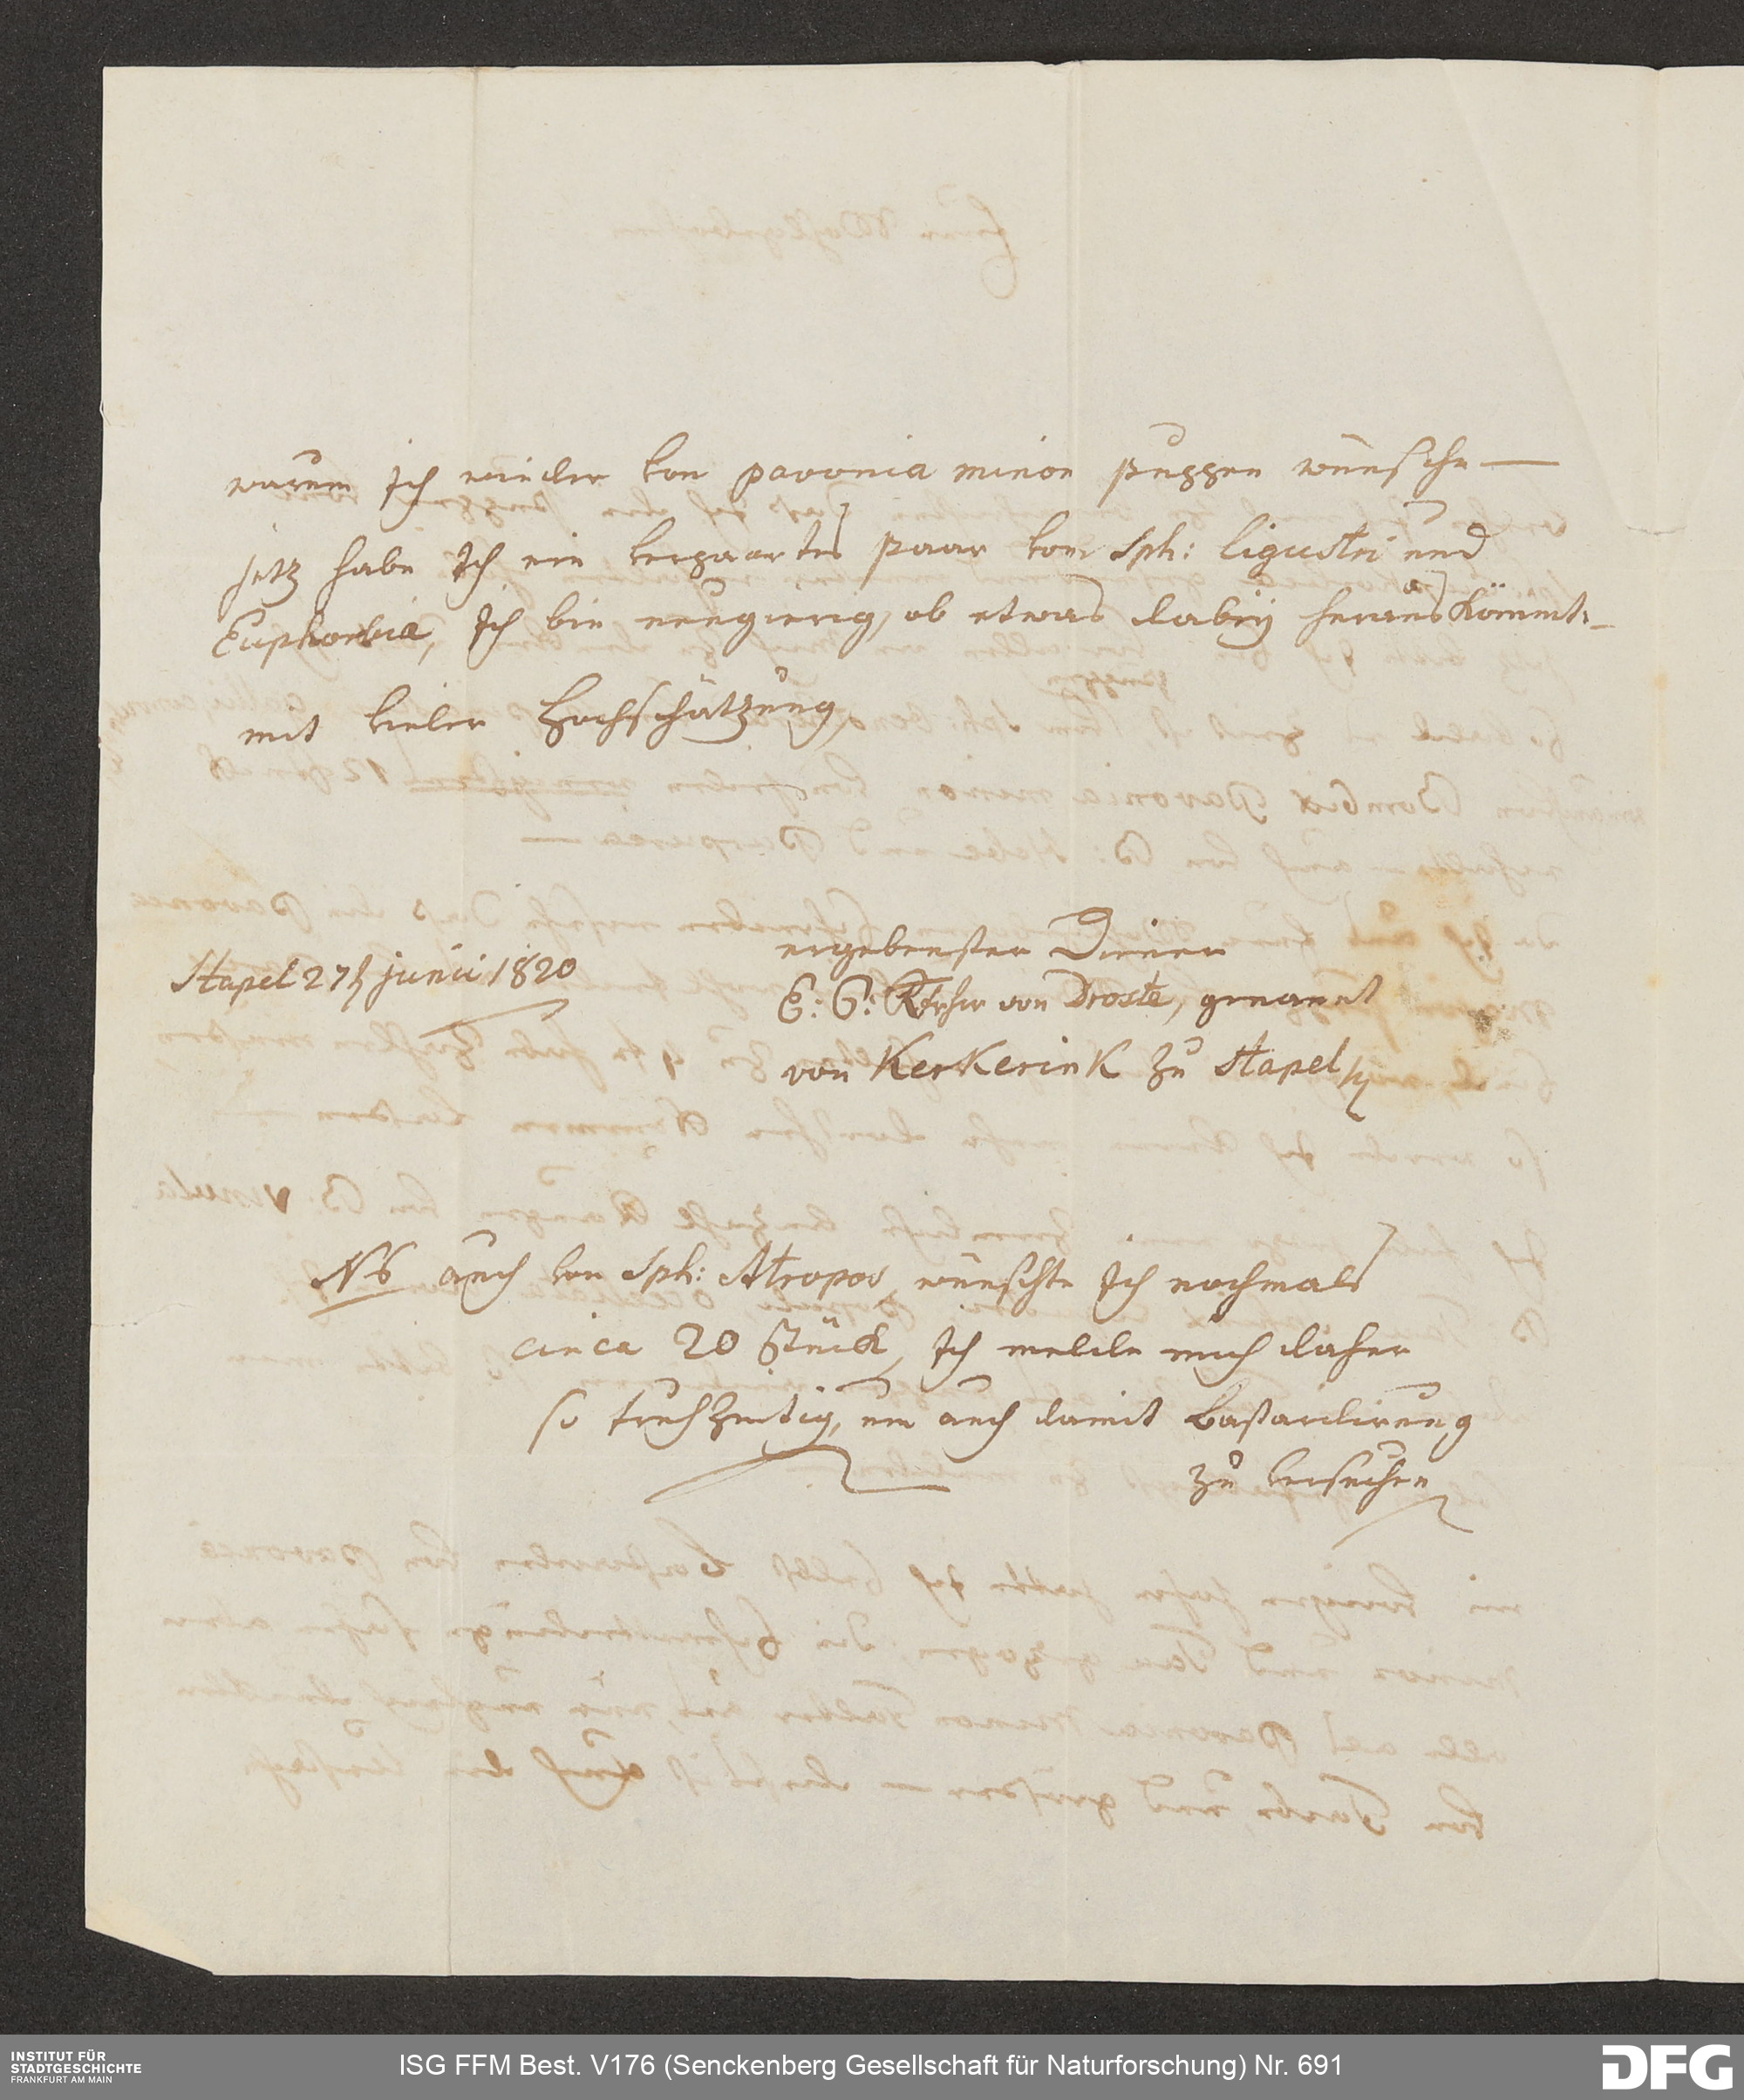 warum ich wieder von pavonia minor puppen wünsche —
jetz habe Ich ein verpaartes paar von Sph: ligustri und
Euphorbia, Ich bin neugierig, ob etwas dabey heraus kömmt —
mit vieler Hochschätzung
ergebenster Diener
Stapel 27t junii 1820
E: C: Frhr von Droste, genannt
von Kerkerink zu Stapel
NB auch von Sph: Atropos, wünschte Ich nochmals
circa 20 Stück, Ich melde mich daher
so fruhzeitig, um auch damit bastardirung
zu versuchen
INSTITUT FÜR
STADTGESCHICHTE
FRANKFURT AM MAIN
ISG FFM Best. V176 (Senckenberg Gesellschaft für Naturforschung) Nr. 691
DFG